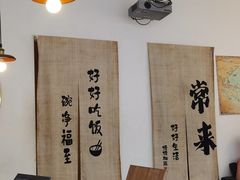 好好吃饭
碗净福至
常来
好好生活